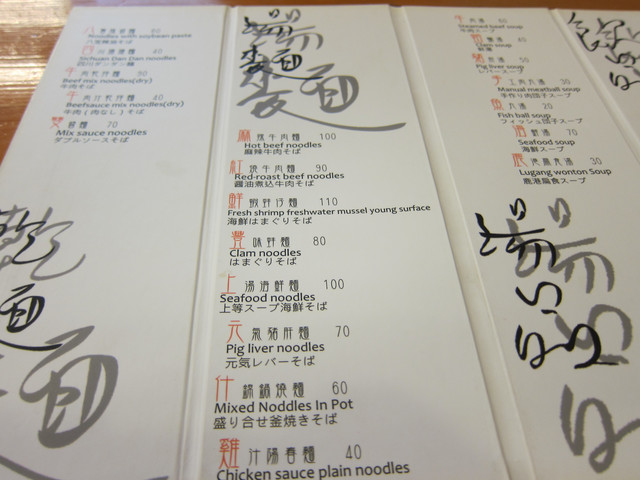 八寶醬拌麵 80
Noodles with soybean paste
八宝味噌そば
四川擔擔麵 40
SiChuan Dan Dan noodles
四川タンタン麺
牛肉乾拌麵 90
Beef mix noodles(dry)
牛肉そば
牛肉汁乾拌麵 40
Beefsauce mix noodles(dry)
牛肉(肉なし)そば
雙醬麵 70
Mix sauce noodles
ダブルソースそば
乾麵
湯麵
麻辣牛肉麵 100
Hot beef noodles
麻辣牛肉そば
紅燒牛肉麵 90
Red-roast beef noodles
醤油煮込牛肉そば
鮮蝦蚌仔麵 110
Fresh shrimp freshwater mussel young surface
海鮮はまぐりそば
豐味蚌麵 80
Clam noodles
はまぐりそば
上湯海鮮麵 100
Seafood noodles
上等スープ海鮮そば
元氣豬肝麵 70
Pig liver noodles
元気レバーそば
什錦鍋燒麵 60
Mixed Noddles In Pot
盛り合せ釜焼きそば
雞汁陽春麵 40
Chicken sauce plain noodles
牛肉湯 60
Steamed beef soup
牛肉スープ
40
Clam soup
50
Pig liver soup
レバースープ
手工丸湯 30
Manual meatball soup
手作り肉団子スープ
魚丸湯 20
Fish ball soup
フィッシュ団子スープ
海鮮湯 70
Seafood soup
海鮮スープ
鹿港扁食湯 30
Lugang wonton Soup
鹿港扁食スープ
湯